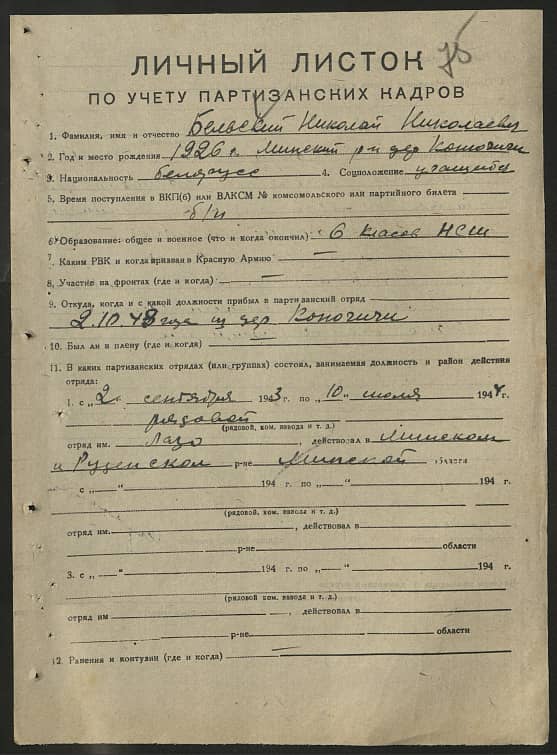 75
ЛИЧНЫЙ ЛИСТОК
ПО УЧЕТУ ПАРТИЗАНСКИХ КАДРОВ
1. Фамилия, имя и отчество Бельский Николай Николаевич
2. Год и место рождения 1926 г. Минский р-н дер Коночичи
3. Национальность белорусс 4. Соцположение учащийся
5. Время поступления в ВКП(б) или ВЛКСМ № комсомольского или партийного билета
б/п
6. Образование: общее и военное (что и когда окончил) 6 класов НСШ
7. Каким РВК и когда призван в Красную Армию —
8. Участие на фронтах (где и когда) —
9. Откуда, когда и с какой должности прибыл в партизанский отряд
2.10.43 года из дер Коночичи
10. Был ли в плену (где и когда) —
11. В каких партизанских отрядах (или группах) состоял, занимаемая должность и район действия
отряда:
1. с „2 сентября 1943 г. по „10" июля 1944 г.
рядовой
(рядовой, ком. взвода и т. д.)
отряд им. Лазо, действовал в Минском
и Руденском р-не Минской области
с „—" 194 г. по „—" 194 г.
(рядовой, ком. взвода и т. д.)
отряд им. , действовал в
р-не области
3. с „—" 194 г. по „—" 194 г.
(рядовой, ком. взвода и т. д.)
отряд им , действовал в
р-не области
12. Ранения и контузии (где и когда) —